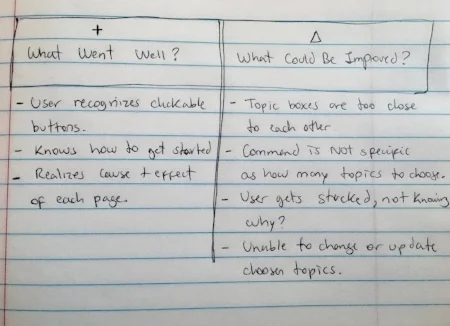 +
What Went Well?
- User recognizes clickable
buttons.
- Knows how to get started
- Realizes cause + effect
of each page.
Δ
What Could Be Improved?
- Topic boxes are too close
to each other
- Command is Not specific
as how many topics to choose.
- User gets stucked, not knowing
why?
- Unable to change or update
choosen topics.